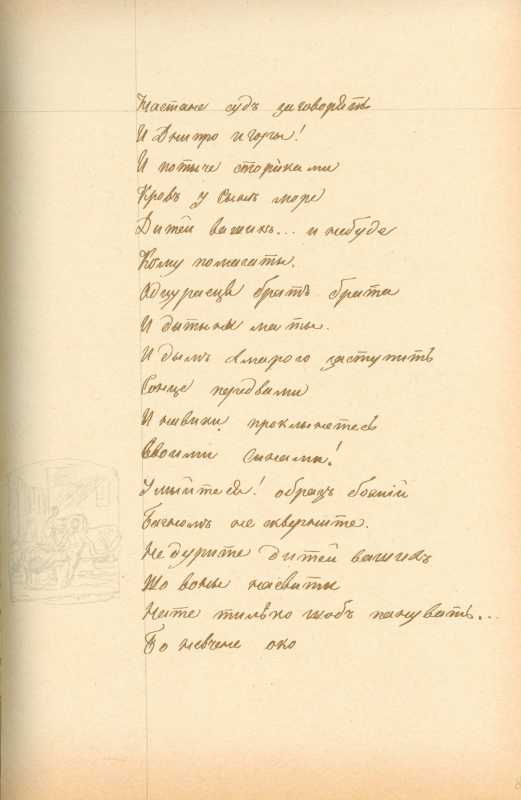 Настане судъ заговорять
И Днипро и горы!
И потыче сторiками
Кровъ у сынѣ море
Дитей вашихъ... и небуде
Кому помагаты.
Одцураецця братъ брата
И дытыны маты.
И дымъ хмарого заступить
Сонце передвами
И навики проклынетесь
Своими сынамы!
Умыйтеся! образъ божiй
Багномъ не скверните.
Недурите дитей вашихъ
Що воны насвиты
Нате тилько щобъ пануватъ...
Бо невчене око